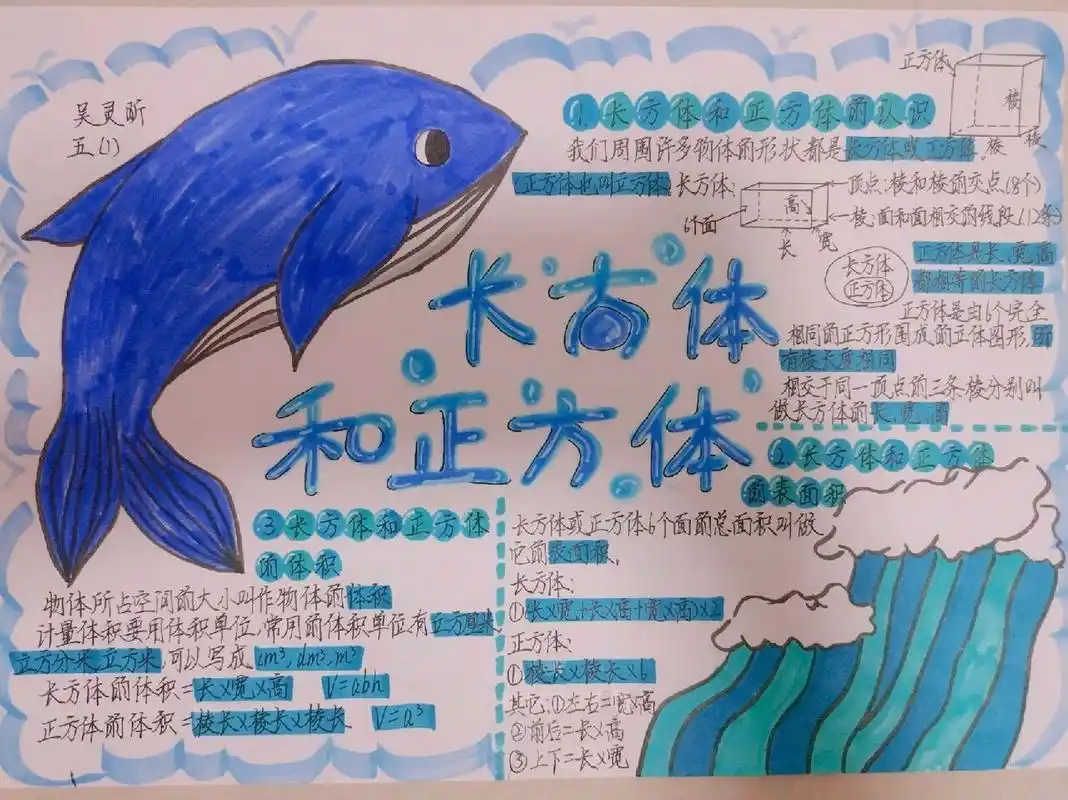 吴灵昕
五(1)
长方体
和正方体
1.长方体和正方体的认识
我们周围许多物体的形状都是长方体或正方体。
(正方体也叫立方体)
长方体:
6个面
高
长
宽
顶点:棱和棱的交点(8个)
棱:面和面相交的线段(12条)
正方体
棱
棱
棱
长方体
正方体
正方体是长、宽、高
都相等的长方体
正方体是由6个完全
相同的正方形围成的立体图形,所
有棱长度相同
相交于同一顶点的三条棱分别叫
做长方体的长、宽、高
2.长方体和正方体
的表面积
长方体或正方体6个面的总面积叫做
它的表面积。
长方体:
①(长×宽+长×高+宽×高)×2
正方体:
①棱长×棱长×6
其它:①左右=宽×高
②前后=长×高
③上下=长×宽
3长方体和正方体
的体积
物体所占空间的大小叫作物体的体积
计量体积要用体积单位,常用的体积单位有立方厘米、
立方分米、立方米,可以写成cm³,dm³,m³
长方体的体积=长×宽×高 V=abh
正方体的体积=棱长×棱长×棱长 V=a³